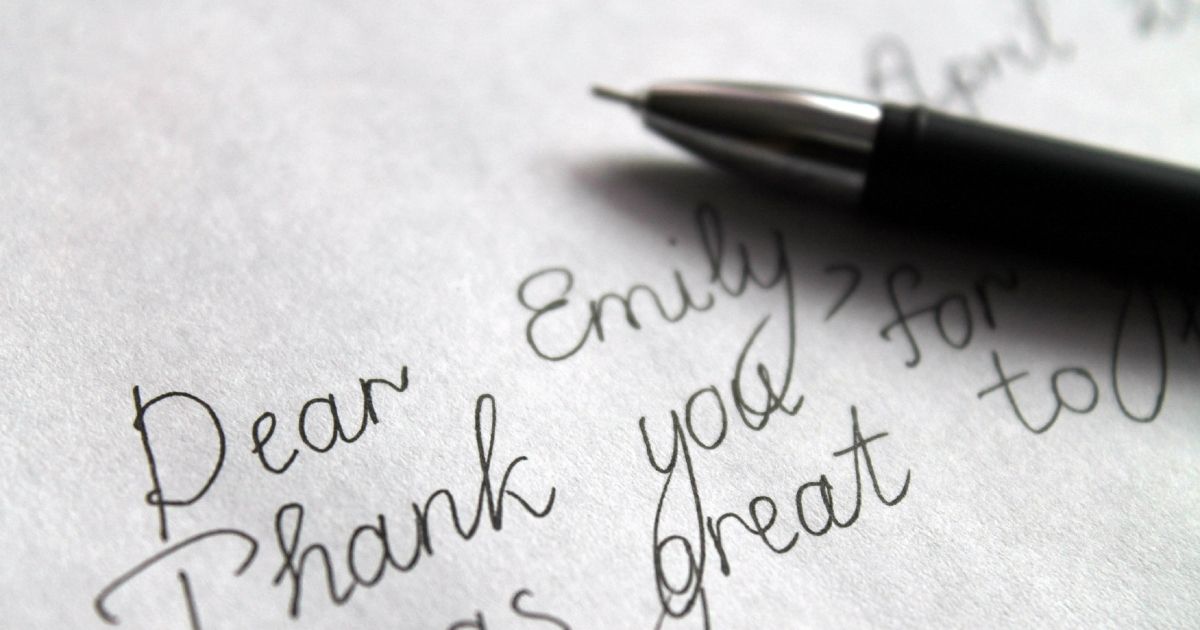 April
Dear Emily,
Thank you for
great to